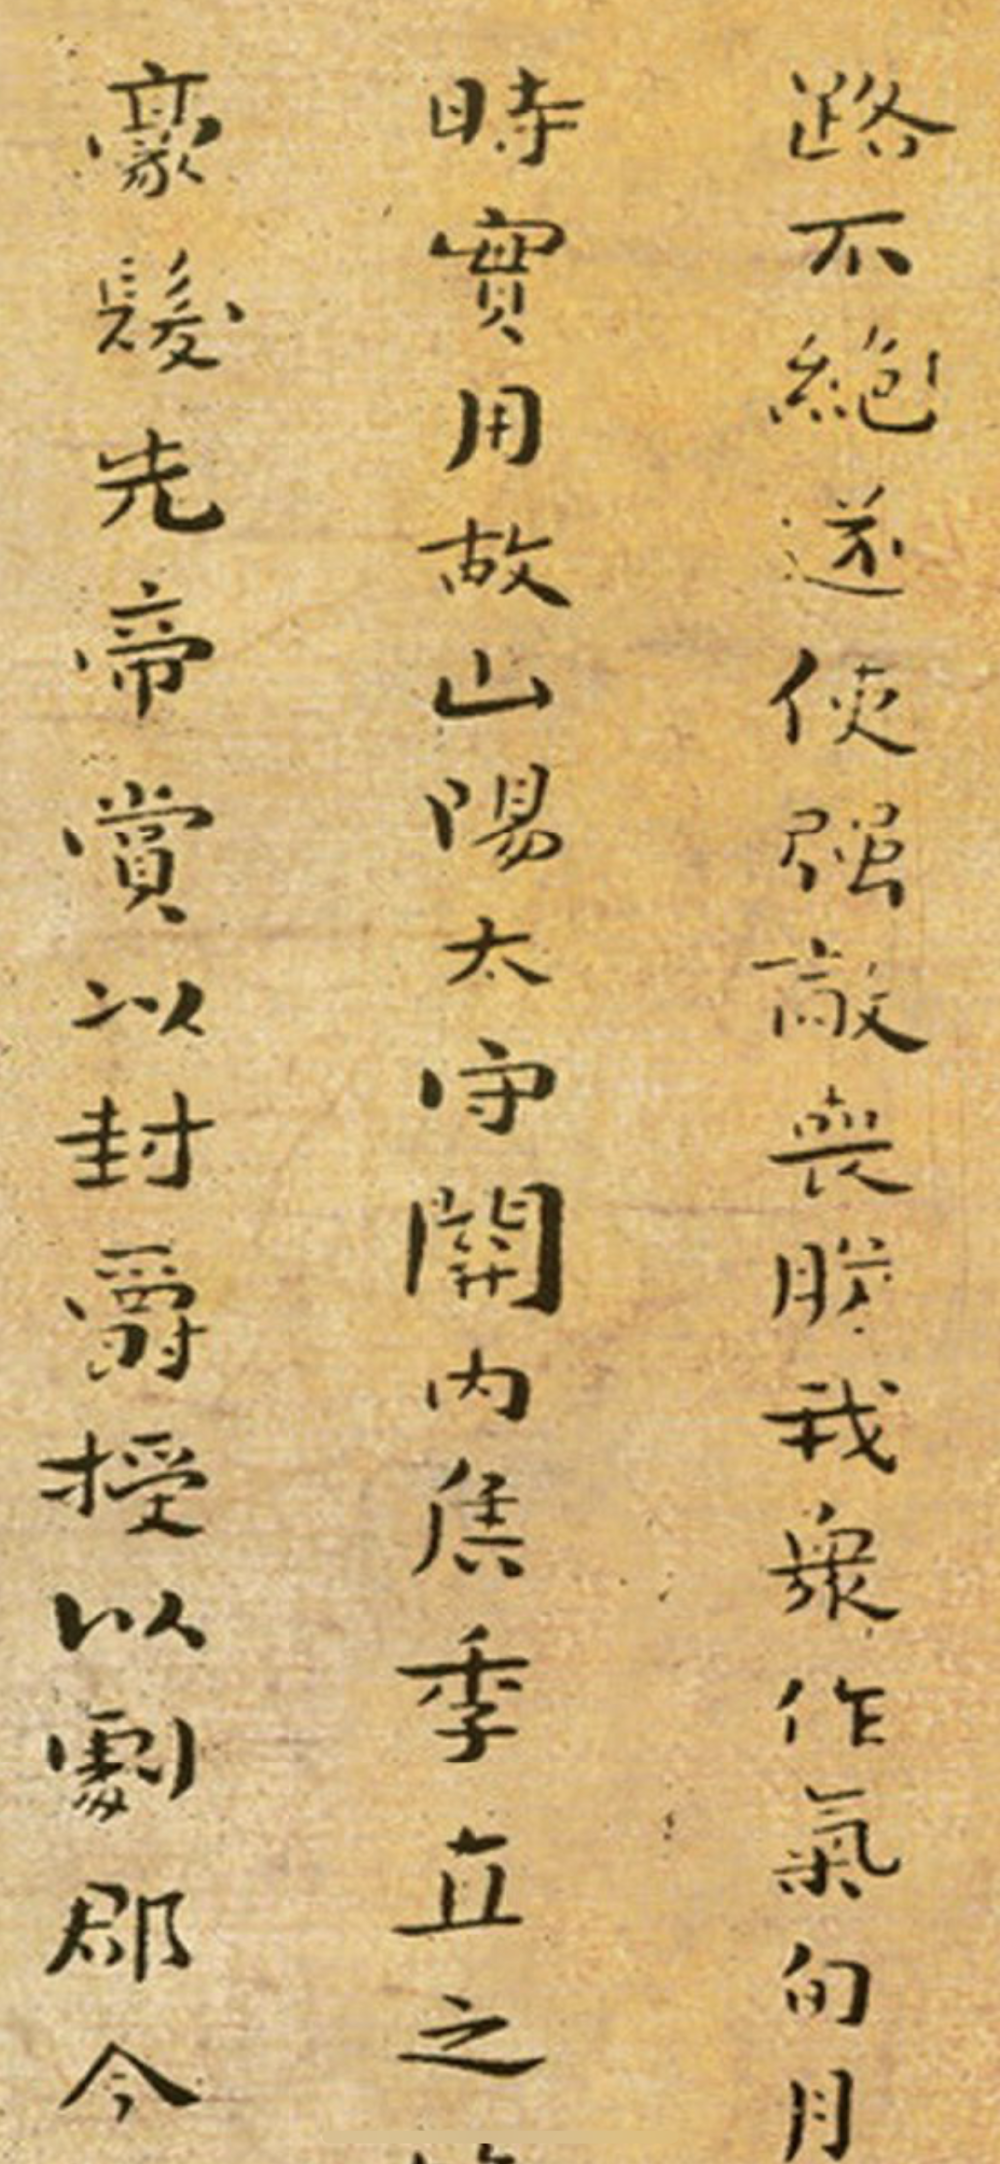 路不絕遂使强敵喪膽我衆作氣旬月
時實用故山陽太守關內侯季直之
豪髮先帝賞以封爵授以劇郡今